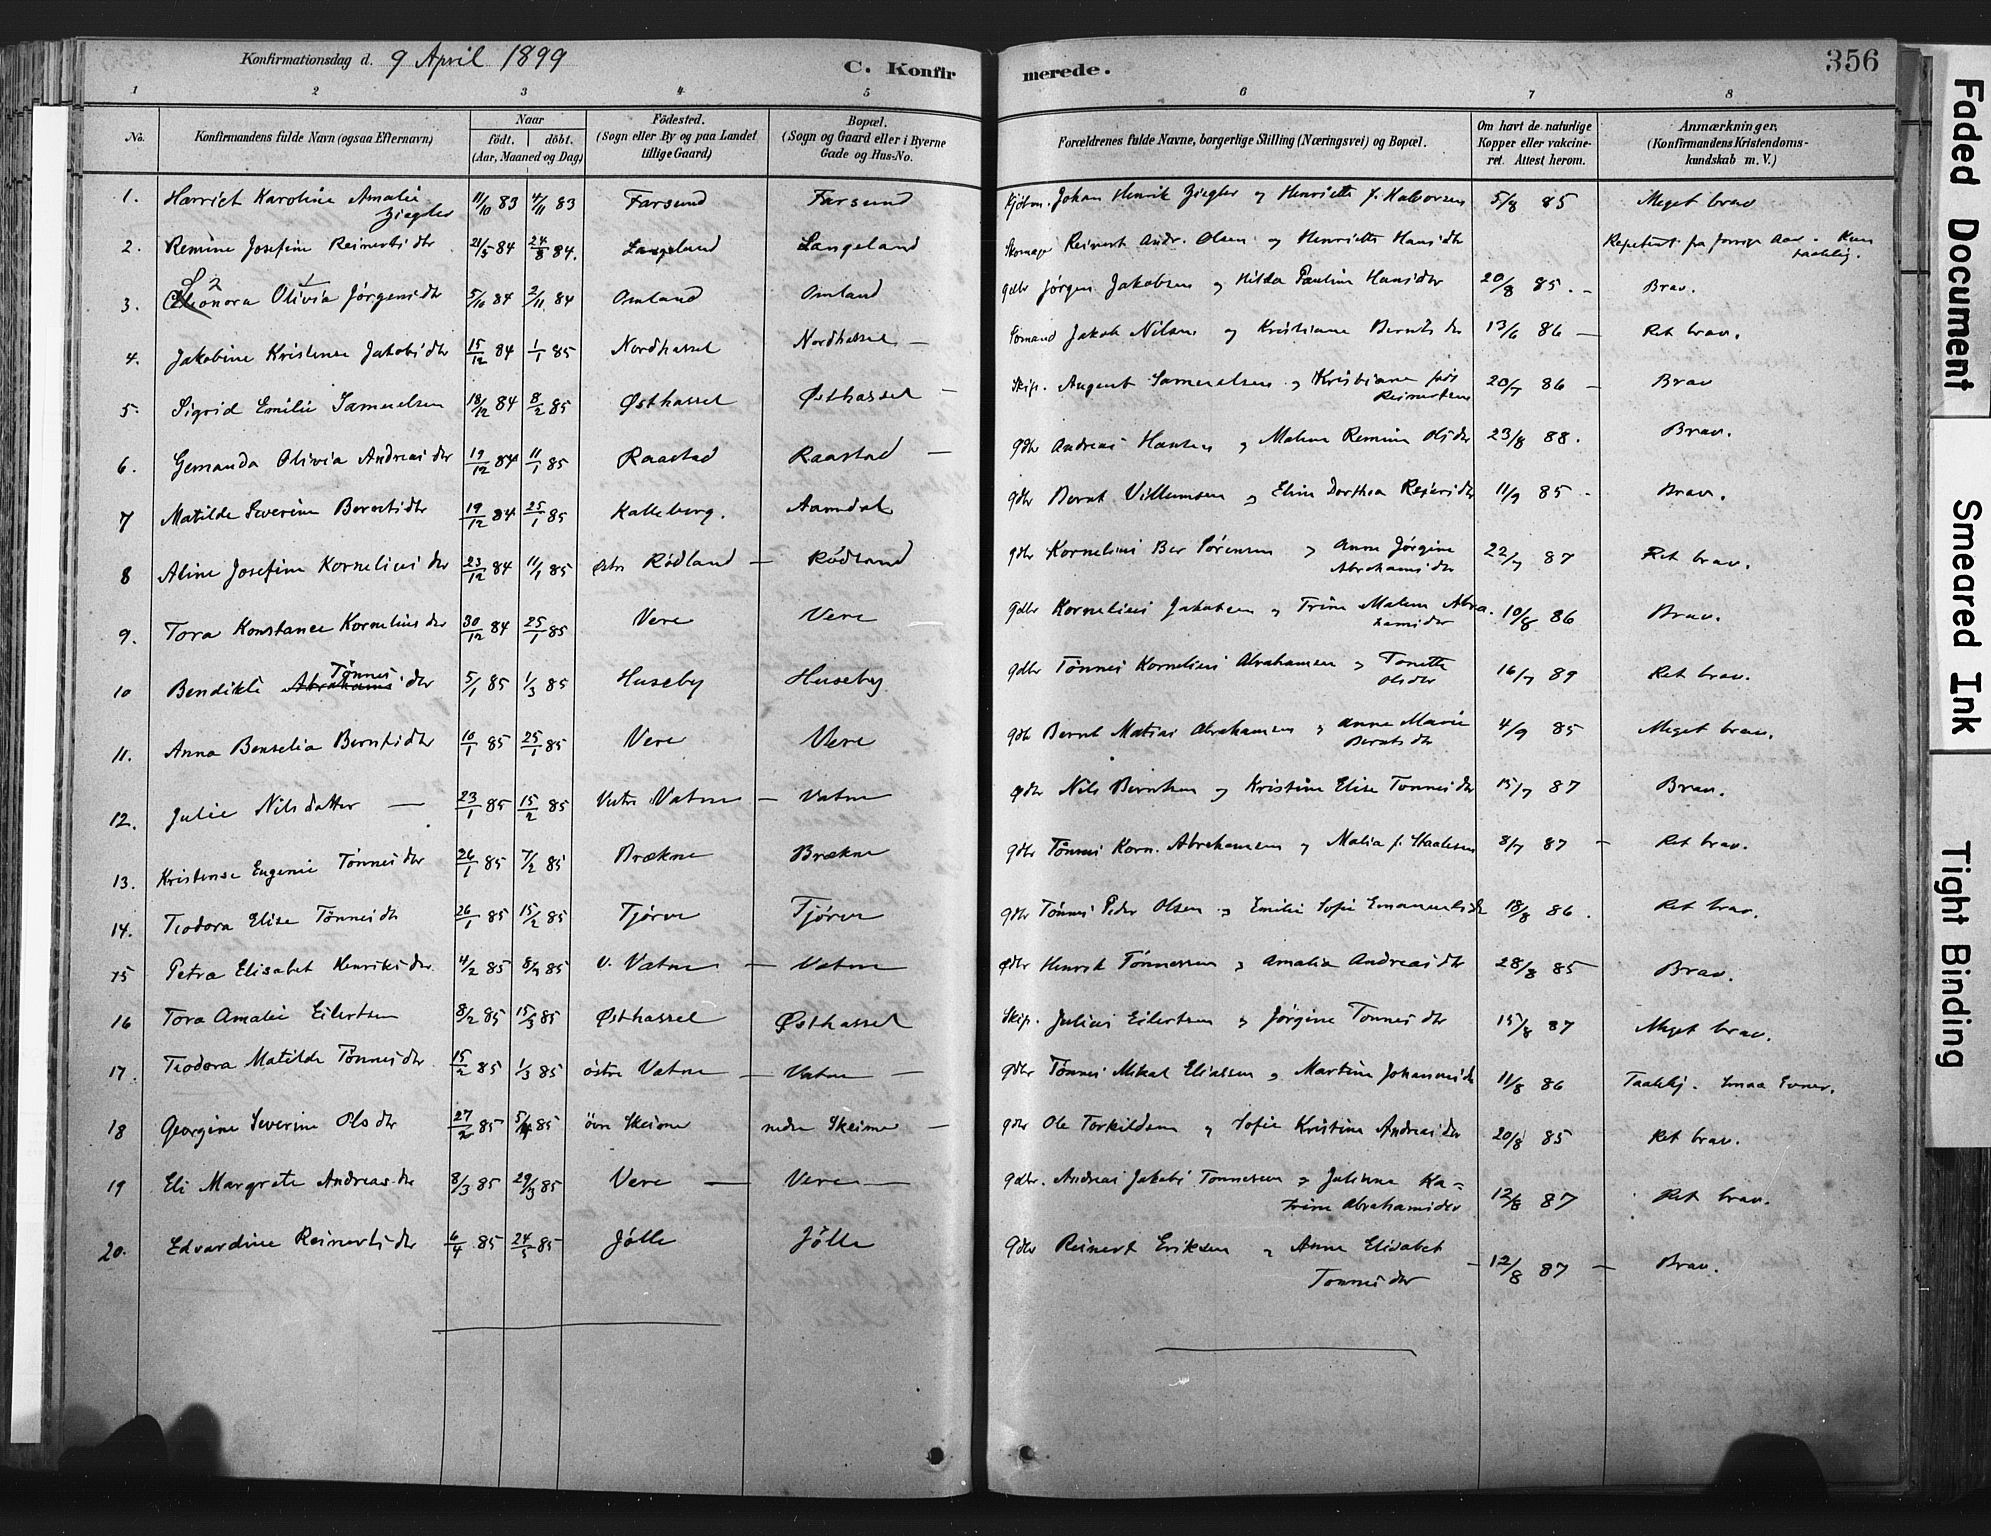 Konfirmationsdag d. 9 April 1899
C. Konfirmerede.
356
1 2 3 4 5 6 7 8
No. Konfirmandens fulde Navn (ogsaa Efternavn) Naar födt. döbt. (Aar, Maaned og Dag) Födested. (Sogn eller By og paa Landet tillige Gaard) Bopæl. (Sogn og Gaard eller i Byerne Gade og Hus-No. Forældrenes fulde Navne, borgerlige Stilling (Næringsvei) og Bopæl. Om havt de naturlige Kopper eller vakcineret. Attest herom. Anmærkninger. (Konfirmandens Kristendomskundskab m. V.)
1. Harriet Karoline Amalie Ziegler 11/10 83 4/11 83 Farsund Farsund Kjöbm. Johan Henrik Ziegler og Henriette f. Halvorsen 5/8 85 Meget brav
2. Remine Josefine Reinertsdtr 21/5 84 24/8 84. Langeland Langeland Skomager Reinert Andr. Olsen og Henriette Hansdtr Repetent fra forrige Aar. Kun taalelig.
3. Eleonora Olivia Jørgensdtr 5/10 84 2/11 84 Omland Omland gdbr Jørgen Jakobsen og Hilda Pauline Hansdtr 20/8 85. - Brav.
4. Jakobine Kristense Jakobsdtr 15/12 84 1/1 85 Nordhassel Nordhassel - Sømand Jakob Nilsen og Kristiane Berntsdtr 13/6 86 - Ret brav.
5. Sigrid Emilie Samuelsen 18/12 84 8/2 85 Østhassel Østhassel - Skip. August Samuelsen og Kristiane født Reinertsen 20/7 86 - Brav
6. Gemanda Olivia Andreasdtr 19/12 84 11/1 85 Raastad Raastad - gdbr Andreas Hansen og Malene Remine Olsdtr 23/8 88. Brav.
7 Matilde Severine Berntsdtr 19/12 84 25/1 85 Kalleberg. Aamdal gdbr Bernt Villumsen og Elene Dorthea Reiersdtr 11/9 85 - Brav.
8 Aline Josefine Korneliusdtr 23/12 84 11/1 85 østre Rødland - Rødland gdbr Kornelius Ber Sørensen og Anne Jørgine Abrahamsdtr 22/7 87 Ret brav.
9. Tora Konstance Korneliusdtr 30/12 84 25/1 85 Vere Vere gdbr Kornelius Jakobsen og Trine Malene Abrahamsdtr 10/8 86 Brav.
10 Bendikte Abrahams Tønnesdtr 5/1 85 1/3 85 Huseby Huseby gdbr Tønnes Kornelius Abrahamsen og Tonette Olsdtr 16/7 89 Ret brav.
11. Anna Benselia Berntsdtr 10/1 85 25/1 85 Vere Vere gdbr Bernt Matias Abrahamsen og Anne Marie Berntsdtr 4/9 85 Meget brav.
12. Julie Nilsdatter - 23/1 85 15/2 85 Vestre Vatne - Vatne gdbr Nils Berntsen og Kristine Elise Tønnesdtr 15/7 87 Brav.
13. Kristense Eugenie Tønnesdtr 26/1 85 7/2 85 Brækne Brækne gdbr Tønnes Korn. Abrahamsen og Malia f. Staalesen 8/7 87 - Ret brav.
14. Teodora Elise Tønnesdtr 26/1 85 15/2 85 Tjørve Tjørve gdbr Tønnes Peder Olsen og Emilie Sofie Emanuelsdtr 18/8 86. Ret brav.
15 Petra Elisabet Henriksdtr. 4/2 85 8/3 85 V. Vatne - Vatne gdbr Henrik Tønnessen og Amalia Andreasdtr 28/8 85 Brav.
16 Tora Amalie Eilertsen 8/2 85 15/3 85 Østhassel Østhassel Skip. Julius Eilertsen og Jørgine Tønnesdtr 15/8 87 Meget brav.
17. Teodora Matilde Tønnesdtr. 15/2 85 1/3 85 östre Vatne - Vatne - gdbr Tønnes Mikal Eliassen og Martine Johannesdtr 11/8 86 Taalelig. Smaa Evner.
18 Georgine Severine Olsdtr 27/2 85 5/4 85 övre Skeime nedre Skeime - gdbr Ole Torkildsen og Sofie Kristine Andreasdtr 20/8 85 Ret brav.
19 Eli Margrete Andreasdtr 8/3 85 29/3 85 Vere - Vere - gdbr. Andreas Jakobs Tønnesen og Julianne Katrine Abrahamsdtr 12/8 87 Ret brav.
20. Edvardine Reinertsdtr 6/4 85 24/5 85 Jølle Jølle gdbr Reinert Eriksen og Anne Elisabet Tønnesdtr - 12/8 87 - Brav.
Faded Document
Smeared Ink
Tight Binding